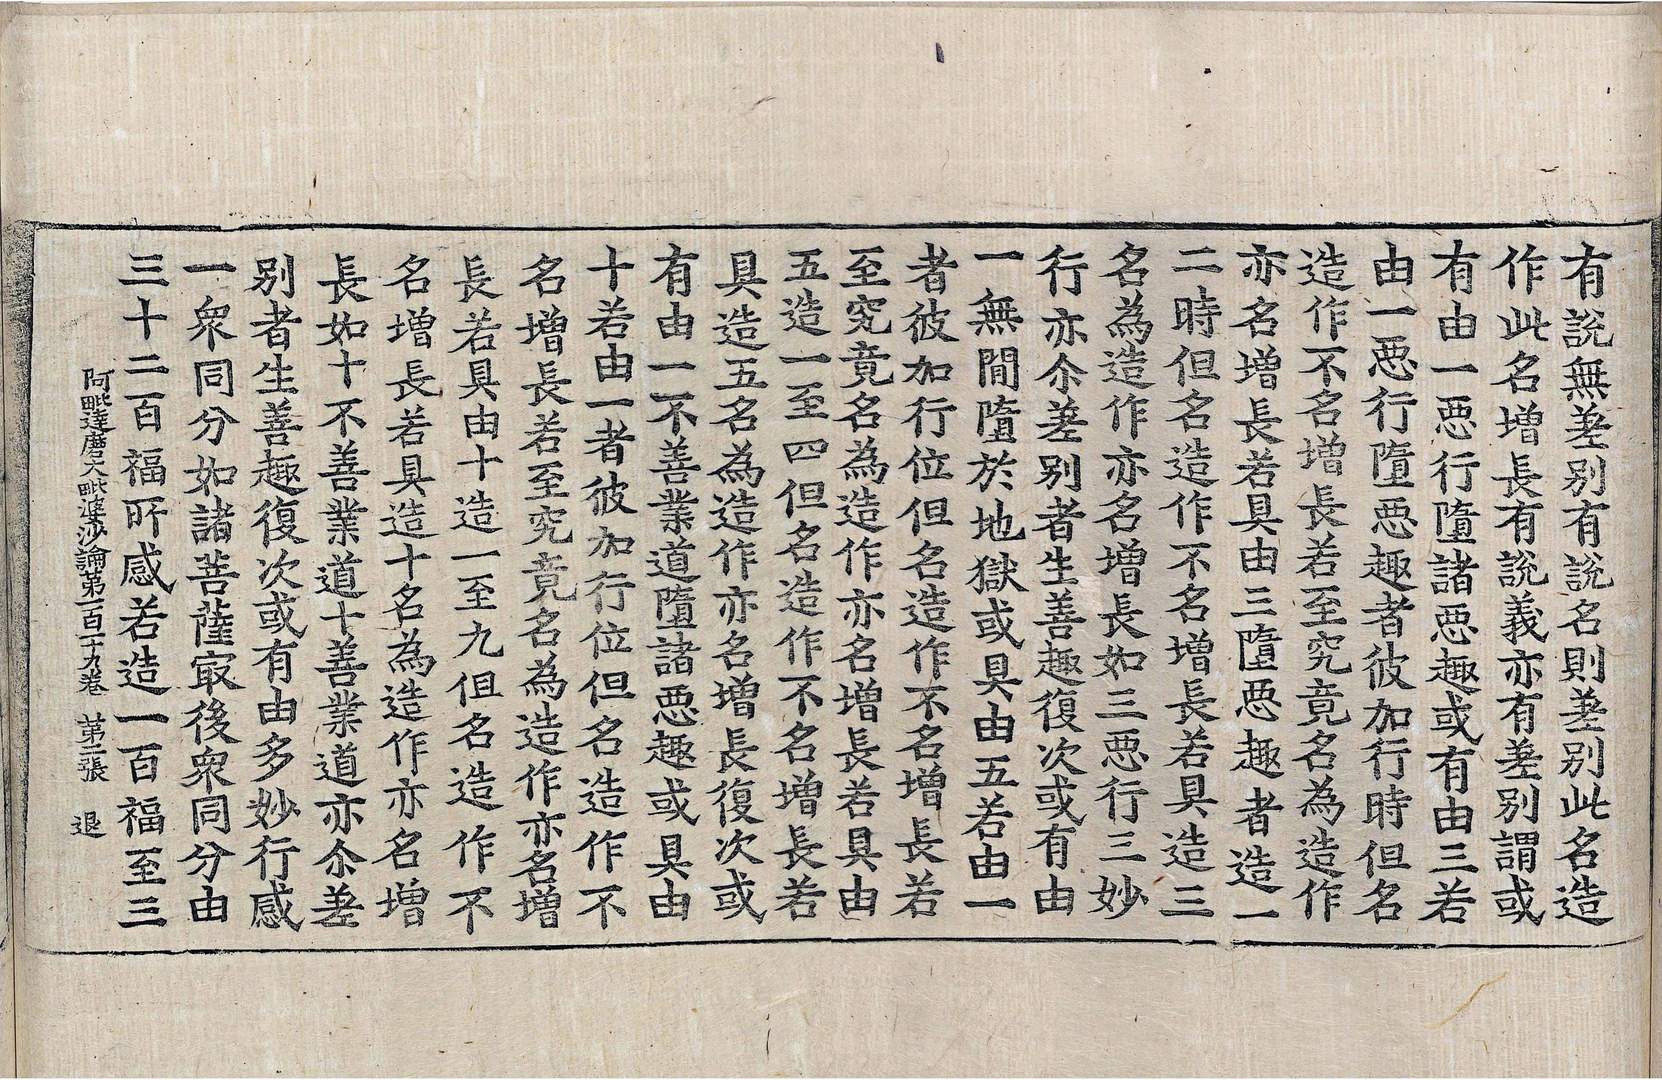 有說無差别有說名則差别此名造
作此名增長有說義亦有差别謂或
有由一惡行墮諸惡趣或有由三若
由一惡行墮惡趣者彼加行時但名
造作不名增長若至究竟名為造作
亦名增長若具由三墮惡趣者造一
二時但名造作不名增長若具造三
名為造作亦名增長如三惡行三妙
行亦尒差别者生善趣復次或有由
一無間墮於地獄或具由五若由一
者彼加行位但名造作不名增長若
至究竟名為造作亦名增長若具由
五造一至四但名造作不名增長若
具造五名為造作亦名增長復次或
有由一不善業道墮諸惡趣或具由
十若由一者彼加行位但名造作不
名增長若至究竟名為造作亦名增
長若具由十造一至九但名造作不
名增長若具造十名為造作亦名增
長如十不善業道十善業道亦尒差
别者生善趣復次或有由多妙行感
一衆同分如諸菩薩㝡後衆同分由
三十二百福所感若造一百福至三
阿毗達磨大毗婆沙論第一百一十九卷 第二張 退